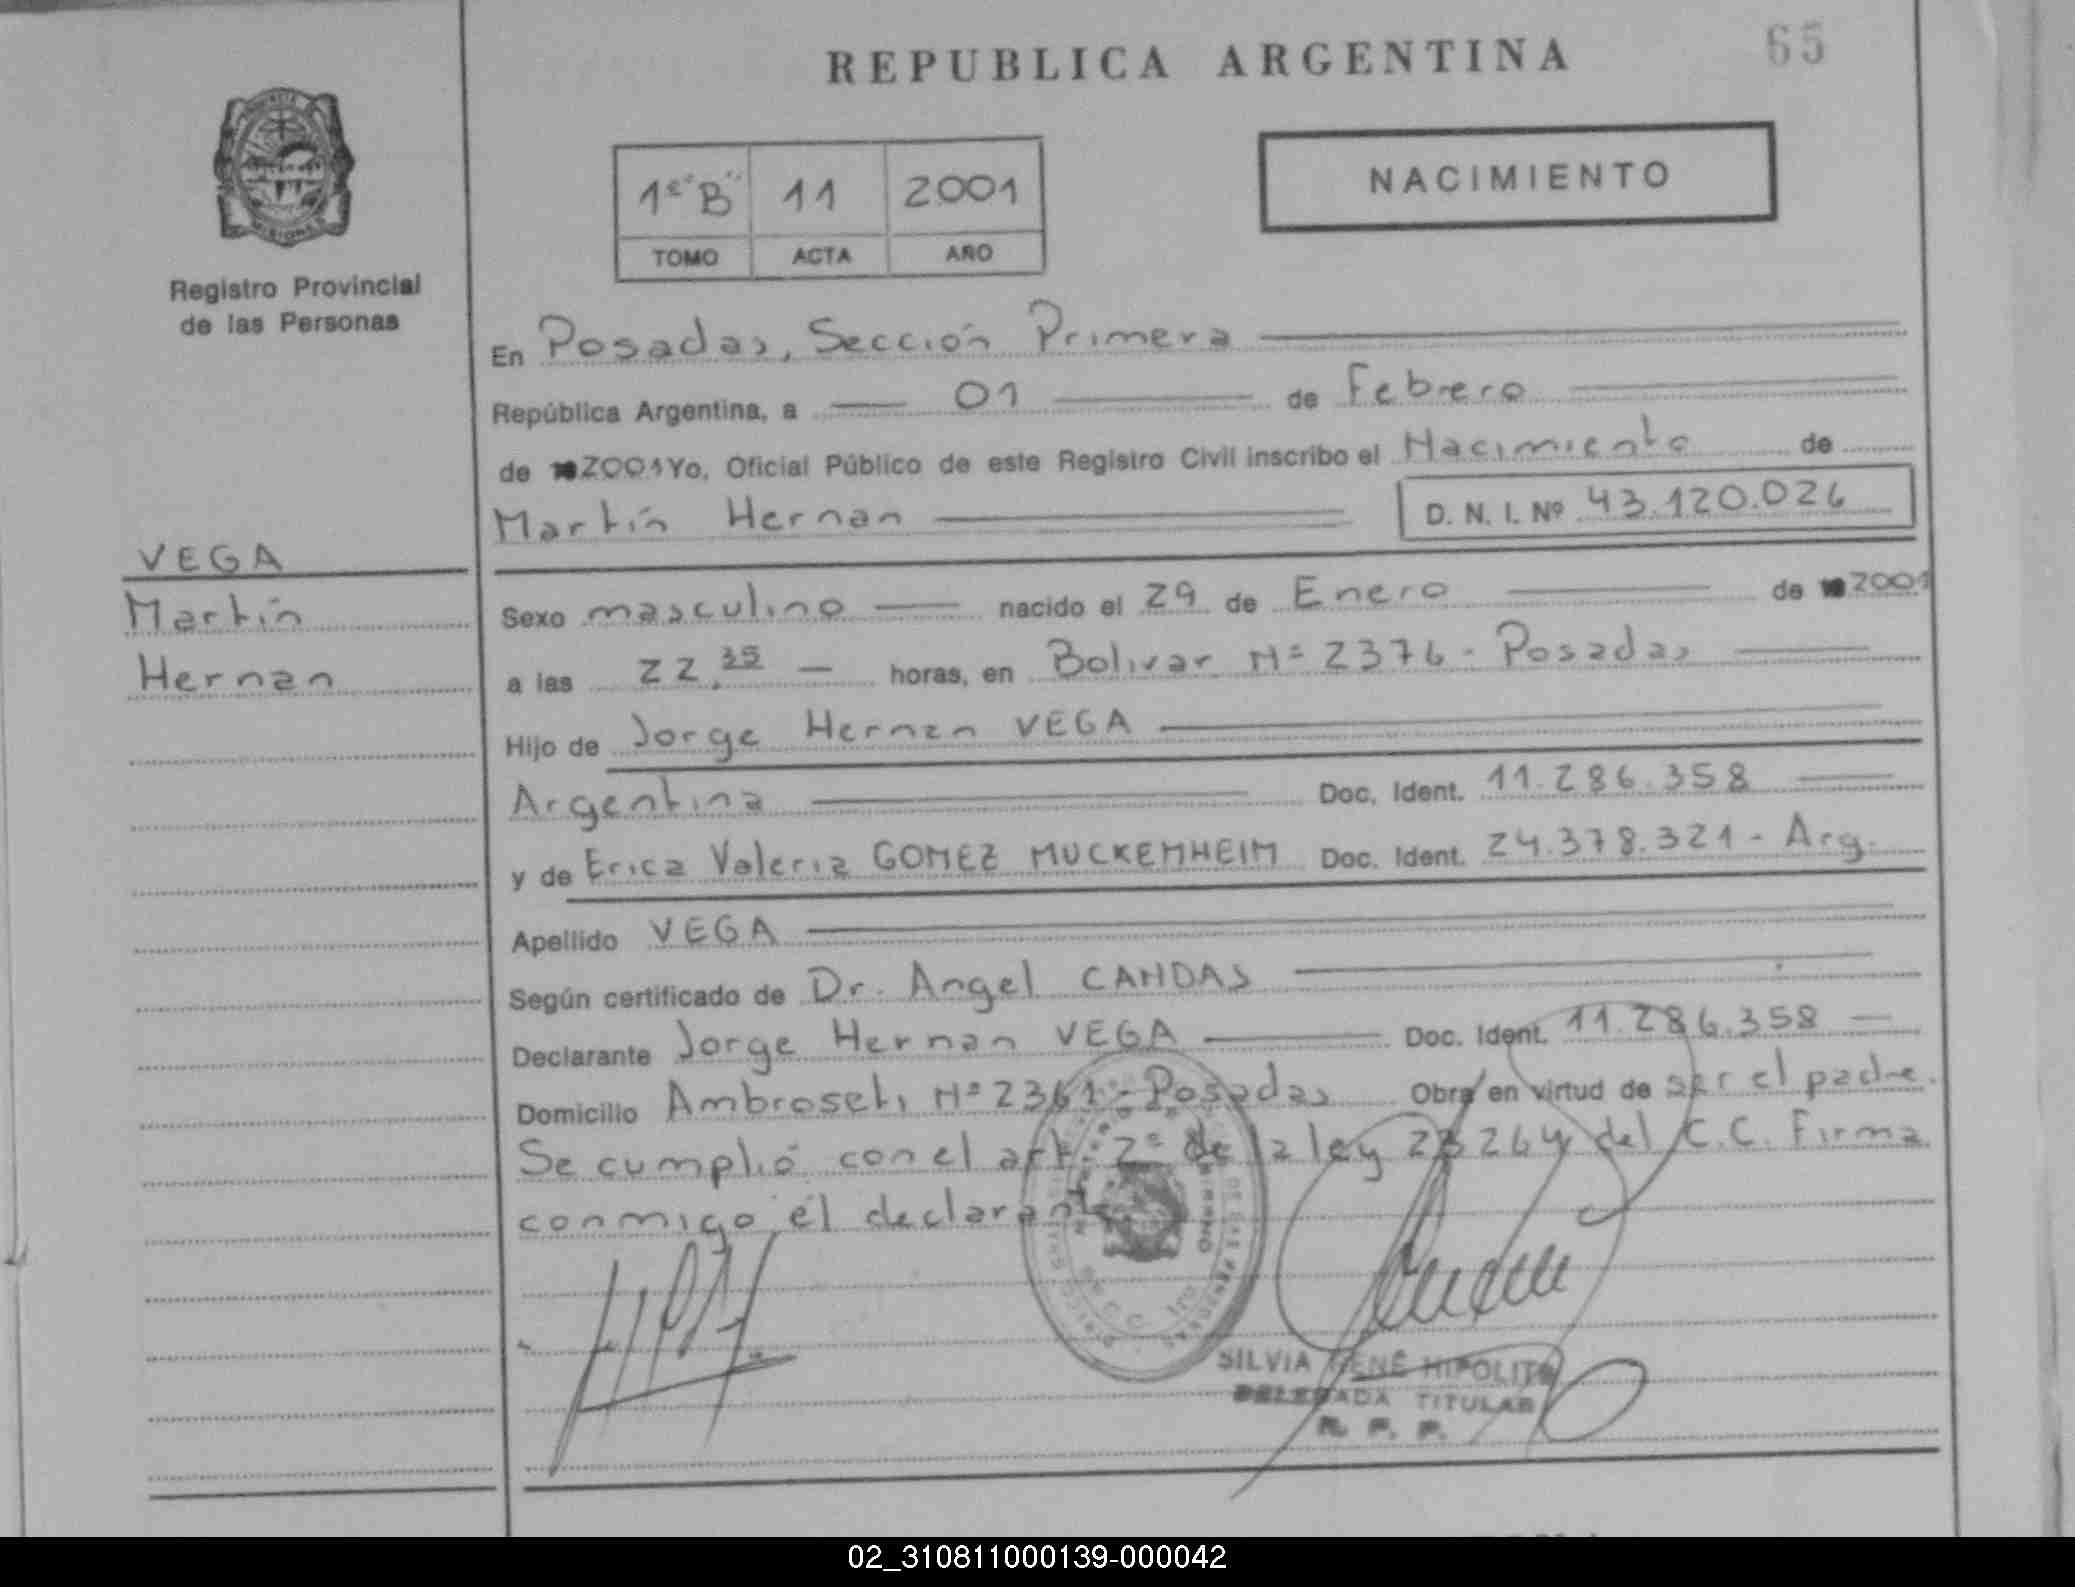 REPUBLICA ARGENTINA
65
1º "B" 11 2001
TOMO ACTA AÑO
NACIMIENTO
Registro Provincial
de las Personas
En Posadas, Sección Primera
República Argentina, a 01 de Febrero
de 2001 Yo, Oficial Público de este Registro Civil inscribo el Nacimiento de
Martín Hernan D. N. I. Nº 43.120.026
VEGA
Martín
Hernan
Sexo masculino nacido el 29 de Enero de 2001
a las 22,35 horas, en Bolivar Nº 2376 - Posadas
Hijo de Jorge Hernan VEGA
Argentina Doc. Ident. 11.286.358
y de Erica Valeria GOMEZ MUCKENHEIM Doc. Ident. 24.378.321 - Arg.
Apellido VEGA
Según certificado de Dr. Angel CANDAS
Declarante Jorge Hernan VEGA Doc. Ident. 11.286.358
Domicilio Ambroseti Nº 2361 - Posadas Obra en virtud de ser el padre.
Se cumplió con el art. 2º de la ley 23264 del C.C. Firma
conmigo el declarante
SILVIA RENÉ HIPOLITO
DELEGADA TITULAR
R. P. P.
02_310811000139-000042